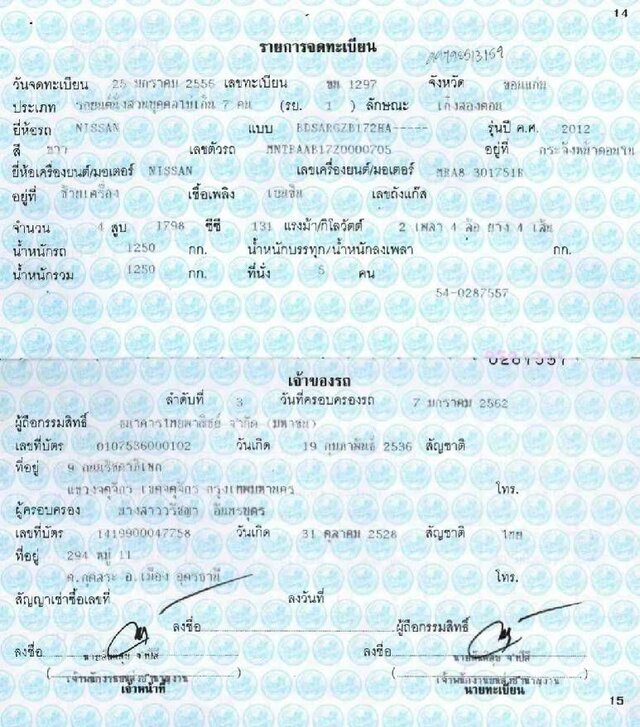 14
รายการจดทะเบียน
วันจดทะเบียน 25 มกราคม 2556 เลขทะเบียน ขม 1297 จังหวัด ขอนแก่น
ประเภท รถยนต์นั่งส่วนบุคคลไม่เกิน 7 คน (รย. 1 ) ลักษณะ เก๋งสองตอน
ยี่ห้อรถ NISSAN แบบ BDSARGZB172HA----- รุ่นปี ค.ศ. 2012
สี ขาว เลขตัวรถ MNTBAAB17Z0000705 อยู่ที่
ยี่ห้อเครื่องยนต์/มอเตอร์ NISSAN เลขเครื่องยนต์/มอเตอร์ MRA8 301751R
อยู่ที่ ซ้ายเครื่อง เชื้อเพลิง เบนซิน เลขถังแก๊ส
จำนวน 4 สูบ 1798 ซีซี 131 แรงม้า/กิโลวัตต์ 2 เพลา 4 ล้อ ยาง 4 เส้น
น้ำหนักรถ 1250 กก. น้ำหนักบรรทุก/น้ำหนักลงเพลา กก.
น้ำหนักรวม 1250 กก. ที่นั่ง 5 คน
54-0287557
เจ้าของรถ
ลำดับที่ 3 วันที่ครอบครองรถ 7 มกราคม 2562
ผู้ถือกรรมสิทธิ์ ธนาคารไทยพาณิชย์ จำกัด (มหาชน)
เลขที่บัตร 0107536000102 วันเกิด 19 กุมภาพันธ์ 2536 สัญชาติ
ที่อยู่ 9 ถนนรัชดาภิเษก
แขวงจตุจักร เขตจตุจักร กรุงเทพมหานคร โทร.
ผู้ครอบครอง นางสาววรัชยา อินทรบุตร
เลขที่บัตร 1419900047758 วันเกิด 31 ตุลาคม 2528 สัญชาติ ไทย
ที่อยู่ 294 หมู่ 11
ต.กุดสระ อ.เมือง อุดรธานี โทร.
สัญญาเช่าซื้อเลขที่ ลงวันที่
ลงชื่อ ผู้ถือกรรมสิทธิ์
ลงชื่อ
เจ้าหน้าที่ นายทะเบียน
15